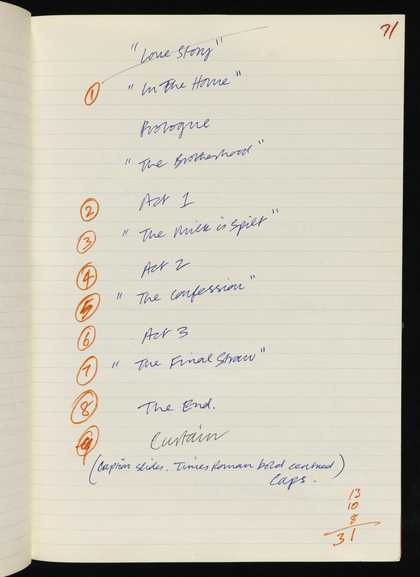 71
"Love Story"
① "In The Home"
Prologue
"The Brotherhood"
② Act 1
③ "The Milk is Spilt"
④ Act 2
⑤ "The Confession"
⑥ Act 3
⑦ "The Final Straw"
⑧ The End.
⑨ Curtain
(Caption slides. Times Roman bold centred)
Caps.
13
10
8
31